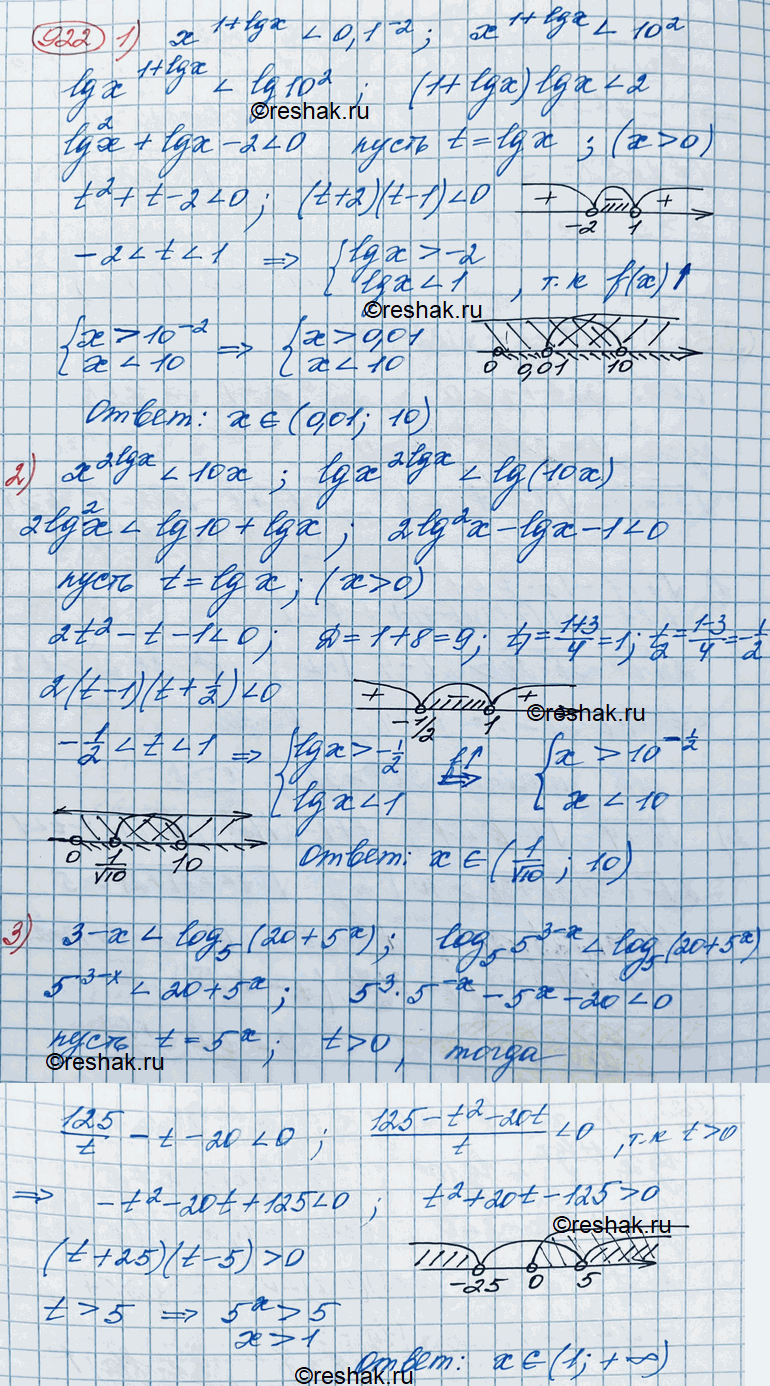 922 1) x^(1+lgx) < 0,1^(-2) ; x^(1+lgx) < 10^2
lgx^(1+lgx) < lg10^2 ; (1+lgx)lgx<2
©reshak.ru
lg^2 x + lgx - 2 < 0 пусть t = lgx ; (x>0)
t^2 + t - 2 < 0 ; (t+2)(t-1) < 0 + - + -2 1
-2 < t < 1 ⇒ { lgx > -2
lgx < 1 , т.к f(x)↑
©reshak.ru
{ x > 10^(-2) ⇒ { x > 0,01
x < 10 x < 10 0 0,01 10
Ответ: x ∈ (0,01; 10)
2) x^(2lgx) < 10x ; lgx^(2lgx) < lg(10x)
2lg^2 x < lg10 + lgx ; 2lg^2 x - lgx - 1 < 0
пусть t = lgx ; (x>0)
2t^2 - t - 1 < 0 ; D = 1+8 = 9 ; t1 = (1+3)/4 = 1 ; t2 = (1-3)/4 = -1/2
2(t-1)(t+1/2) < 0 + - + -1/2 1
©reshak.ru
-1/2 < t < 1 ⇒ { lgx > -1/2 f↑ ⇔ { x > 10^(-1/2)
lgx < 1 x < 10
0 1/√10 10 Ответ: x ∈ (1/√10 ; 10)
3) 3-x < log_5 (20+5^x) ; log_5 5^(3-x) < log_5 (20+5^x)
5^(3-x) < 20+5^x ; 5^3 · 5^(-x) - 5^x - 20 < 0
пусть t = 5^x ; t>0 , тогда
©reshak.ru
125/t - t - 20 < 0 ; (125 - t^2 - 20t)/t < 0 , т.к t>0
⇒ -t^2 - 20t + 125 < 0 ; t^2 + 20t - 125 > 0
©reshak.ru
(t+25)(t-5) > 0 -25 0 5
t > 5 ⇒ 5^x > 5
x > 1
Ответ: x ∈ (1; +∞)
©reshak.ru